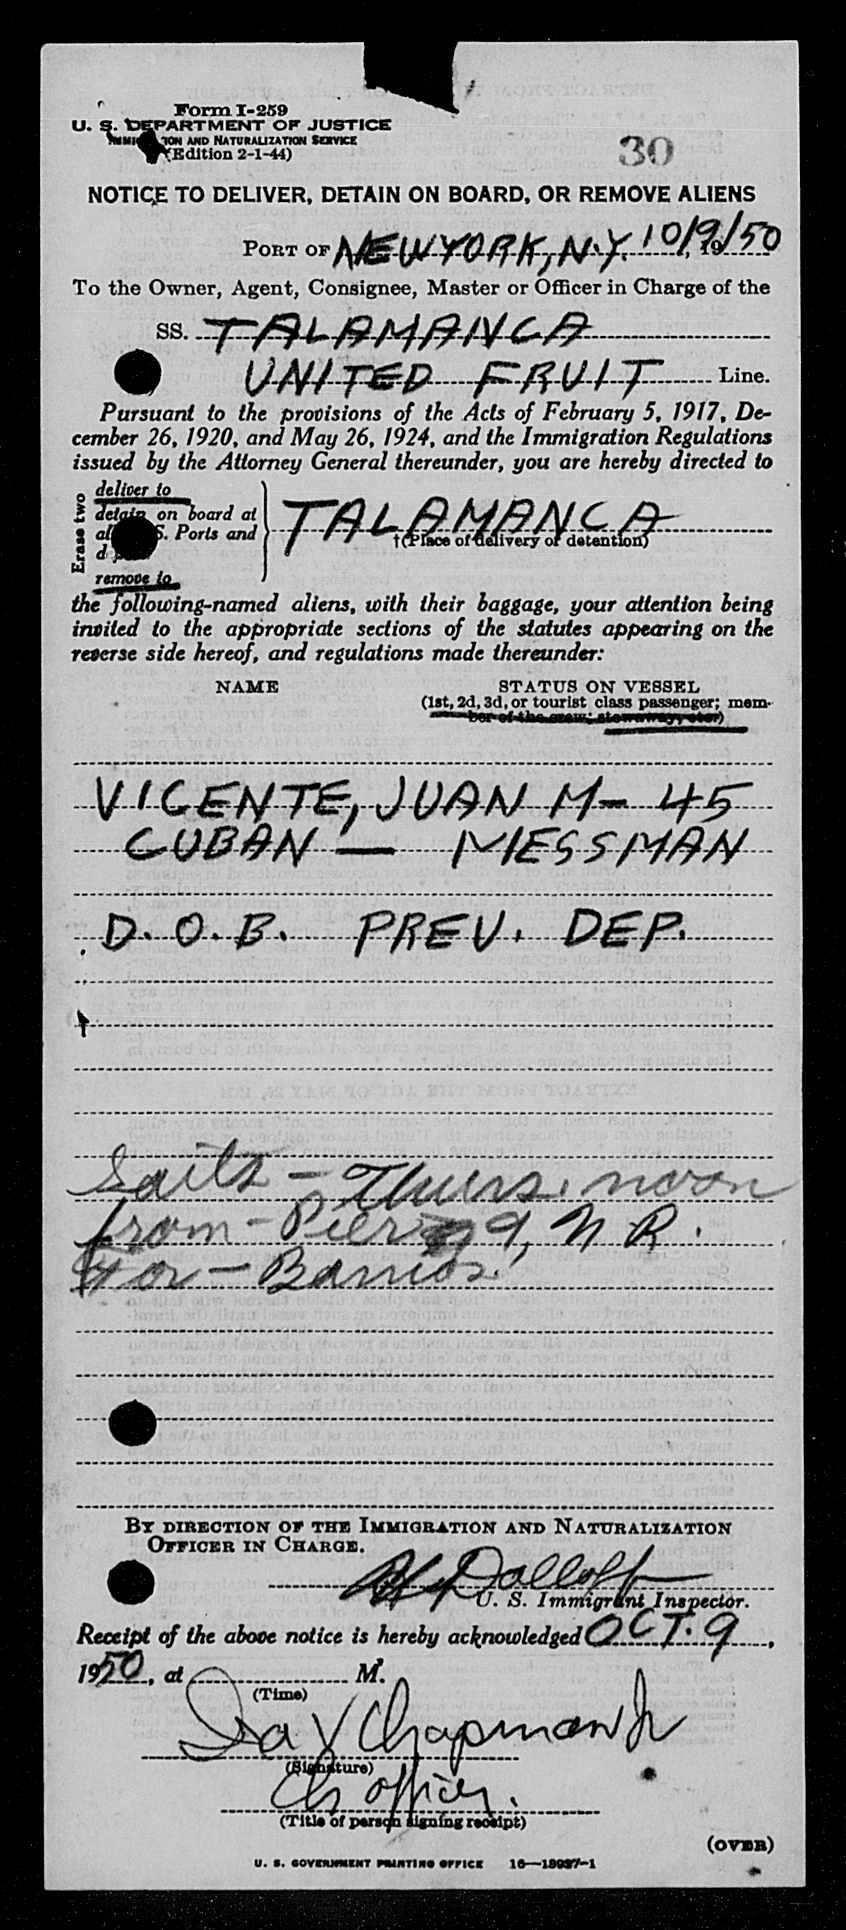 Form I-259
U. S. DEPARTMENT OF JUSTICE
IMMIGRATION AND NATURALIZATION SERVICE
(Edition 2-1-44)
30
NOTICE TO DELIVER, DETAIN ON BOARD, OR REMOVE ALIENS
PORT OF NEW YORK, N.Y. 10/9/50, 19
To the Owner, Agent, Consignee, Master or Officer in Charge of the
SS. TALAMANCA
UNITED FRUIT Line.
Pursuant to the provisions of the Acts of February 5, 1917, De-
cember 26, 1920, and May 26, 1924, and the Immigration Regulations
issued by the Attorney General thereunder, you are hereby directed to
Erase two
deliver to
detain on board at
S. Ports and
remove to
TALAMANCA
†(Place of delivery or detention)
the following-named aliens, with their baggage, your attention being
invited to the appropriate sections of the statutes appearing on the
reverse side hereof, and regulations made thereunder:
NAME STATUS ON VESSEL
(1st, 2d, 3d, or tourist class passenger; mem-
ber of the crew; stowaway, etc.)
VICENTE, JUAN M- 45
CUBAN — MESSMAN
D.O.B. PREV. DEP.
Sails - Thurs. noon
from - Pier 9, N.R.
For - Barrios.
BY DIRECTION OF THE IMMIGRATION AND NATURALIZATION
OFFICER IN CHARGE.
U. S. Immigrant Inspector.
Receipt of the above notice is hereby acknowledged OCT. 9,
1950, at M.
(Time)
Chapman Jr
(Signature)
Ch officer.
(Title of person signing receipt)
(OVER)
U. S. GOVERNMENT PRINTING OFFICE 16—13937-1